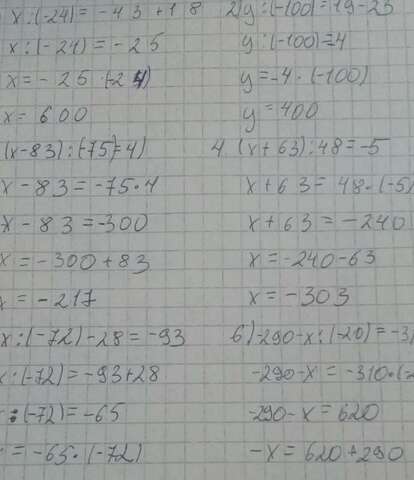 x:(-24)=-43+18
x:(-24)=-25
x=-25·(-24)
x=600
(x-83):(-75)=4)
x-83=-75·4
x-83=-300
x=-300+83
x=-217
x:(-72)-28=-93
x:(-72)=-93+28
:(-72)=-65
=-65·(-72)
2) y:(-100)=19-23
y:(-100)=4
y=-4·(-100)
y=400
4. (x+63):48=-5
x+63=48·(-5)
x+63=-240
x=-240-63
x=-303
6) -290-x:(-20)=-31
-290-x=-310·(-2
-290-x=620
-x=620+290